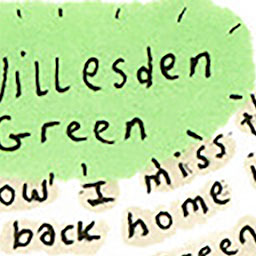 Willesden
Green
ow I miss t
back home i
een